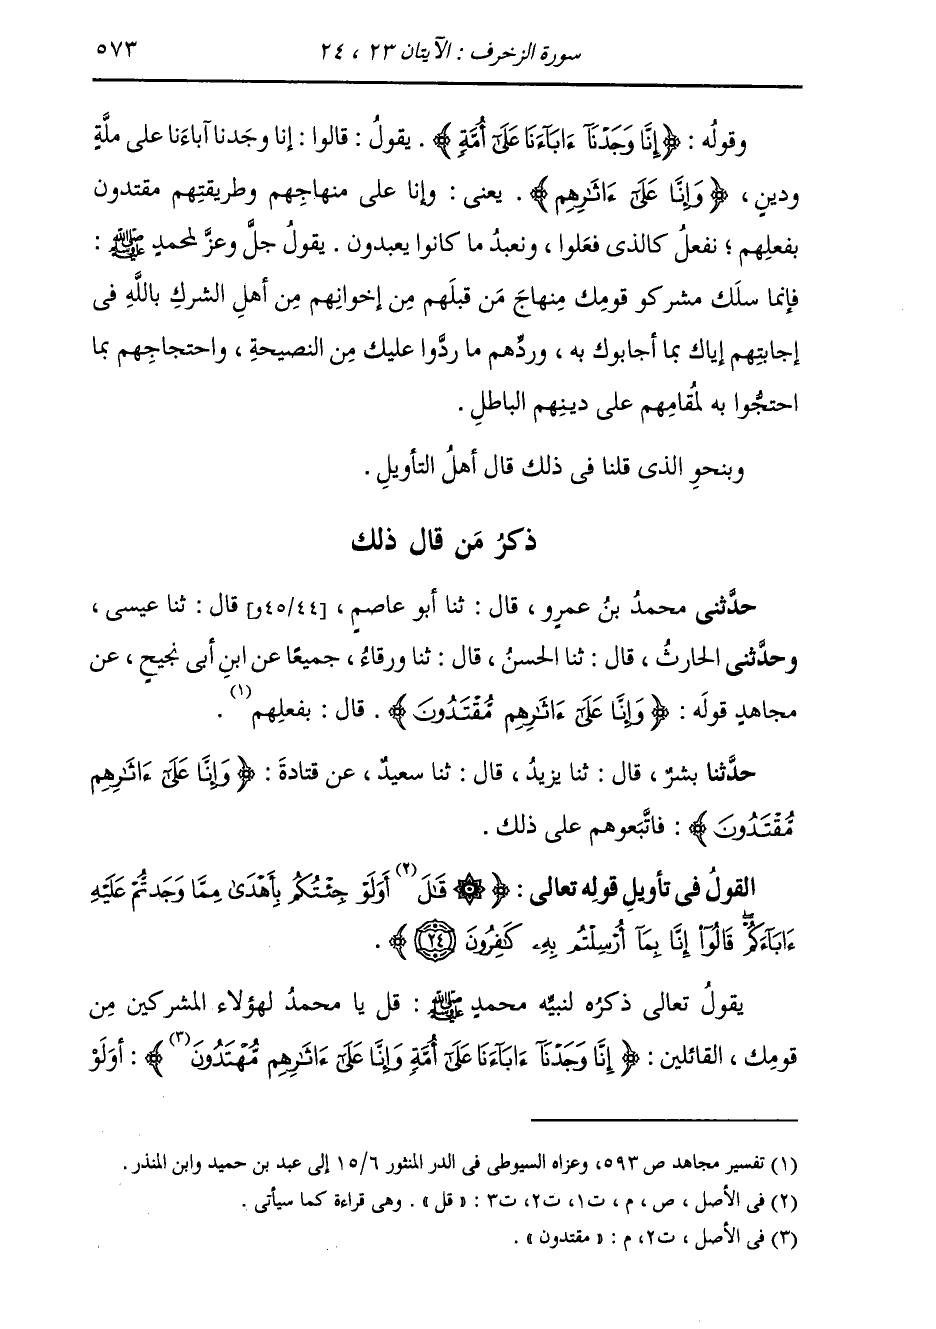 سورة الزخرف : الآيتان ٢٣ ، ٢٤ ٥٧٣
وقولُه : ﴿إِنَّا وَجَدْنَآ ءَابَآءَنَا عَلَىٰٓ أُمَّةٍ﴾ . يقولُ : قالوا : إنا وجَدنا آباءَنا على ملَّةٍ
ودينٍ ، ﴿وَإِنَّا عَلَىٰٓ ءَاثَٰرِهِم﴾ . يعنى : وإنا على منهاجِهم وطريقتِهم مقتدون
بفعلِهم ؛ نفعلُ كالذى فعَلوا ، ونعبدُ ما كانوا يعبدون . يقولُ جلَّ وعزَّ لمحمدٍ ﷺ :
فإنما سلَك مشركو قومِك مِنهاجَ مَن قبلَهم مِن إخوانِهم مِن أهلِ الشركِ باللَّهِ فى
إجابتِهم إياك بما أجابوك به ، وردِّهم ما ردُّوا عليك مِن النصيحةِ ، واحتجاجِهم بما
احتجُّوا به لمُقامِهم على دينِهم الباطلِ .
وبنحوِ الذى قلنا فى ذلك قال أهلُ التأويلِ .
ذكرُ مَن قال ذلك
حدَّثنى محمدُ بنُ عمرٍو ، قال : ثنا أبو عاصمٍ ، [٤٥/٤٤و] قال : ثنا عيسى ،
وحدَّثنى الحارثُ ، قال : ثنا الحسنُ ، قال : ثنا ورقاءُ ، جميعًا عن ابنِ أبى نجيحٍ ، عن
مجاهدٍ قولَه : ﴿وَإِنَّا عَلَىٰٓ ءَاثَٰرِهِم مُّقْتَدُونَ﴾ . قال : بفعلِهم(١) .
حدَّثنا بشرٌ ، قال : ثنا يزيدُ ، قال : ثنا سعيدٌ ، عن قتادةَ : ﴿وَإِنَّا عَلَىٰٓ ءَاثَٰرِهِم
مُّقْتَدُونَ﴾ : فاتَّبَعوهم على ذلك .
القولُ فى تأويلِ قولِه تعالى : ﴿۞ قَٰلَ(٢) أَوَلَوْ جِئْتُكُم بِأَهْدَىٰ مِمَّا وَجَدتُّمْ عَلَيْهِ
ءَابَآءَكُمْۖ قَالُوٓا۟ إِنَّا بِمَآ أُرْسِلْتُم بِهِۦ كَٰفِرُونَ ٢٤﴾ .
يقولُ تعالى ذكرُه لنبيِّه محمدٍ ﷺ : قل يا محمدُ لهؤلاء المشركين مِن
قومِك ، القائلين : ﴿إِنَّا وَجَدْنَآ ءَابَآءَنَا عَلَىٰٓ أُمَّةٍ وَإِنَّا عَلَىٰٓ ءَاثَٰرِهِم مُّهْتَدُونَ(٣)﴾ : أوَلَوْ
(١) تفسير مجاهد ص ٥٩٣، وعزاه السيوطى فى الدر المنثور ١٥/٦ إلى عبد بن حميد وابن المنذر .
(٢) فى الأصل ، ص ، م ، ت١، ت٢، ت٣ : « قل » . وهى قراءة كما سيأتى .
(٣) فى الأصل ، ت٢، م : « مقتدون » .